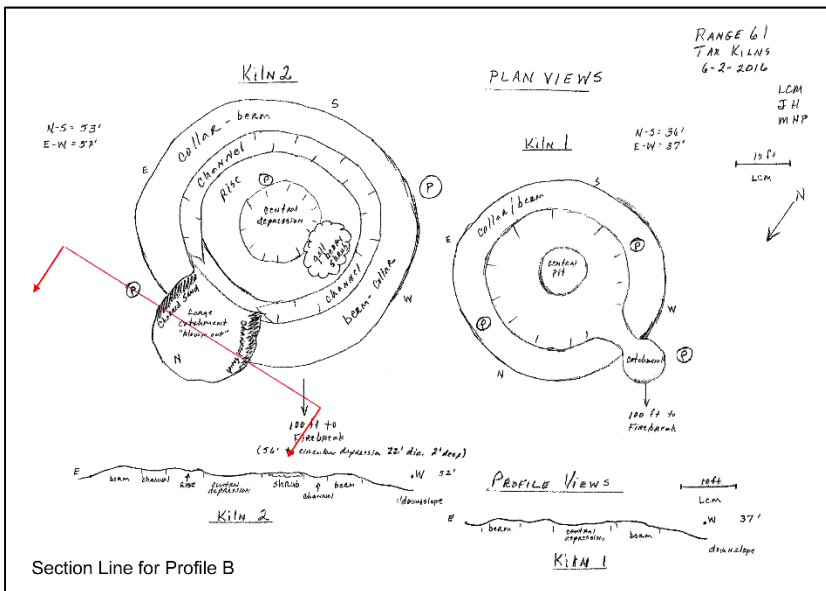 RANGE 61
TAR KILNS
6-2-2016
LCM
JH
MHP
10ft
LCM
N
PLAN VIEWS
Kiln 2
N-S = 53'
E-W = 57'
S
E
W
N
COLLAR-berm
Channel
Rise
P
central
depression
gall
berry
shrub
channel
berm-collar
P
P
Charred Sand
Large
catchment
"blowout"
100 ft to
Firebreak
(56' to circular depression 22' dia, 2' deep)
Kiln 1
N-S = 36'
E-W = 37'
S
E
W
N
collar/berm
central
pit
P
P
P
catchment
100 ft to
Firebreak
E
berm
channel
Rise
central
depression
shrub
channel
berm
W 52'
downslope
Kiln 2
PROFILE VIEWS
10ft
LCM
E
berm
central
depression
berm
W 37'
downslope
Kiln 1
Section Line for Profile B